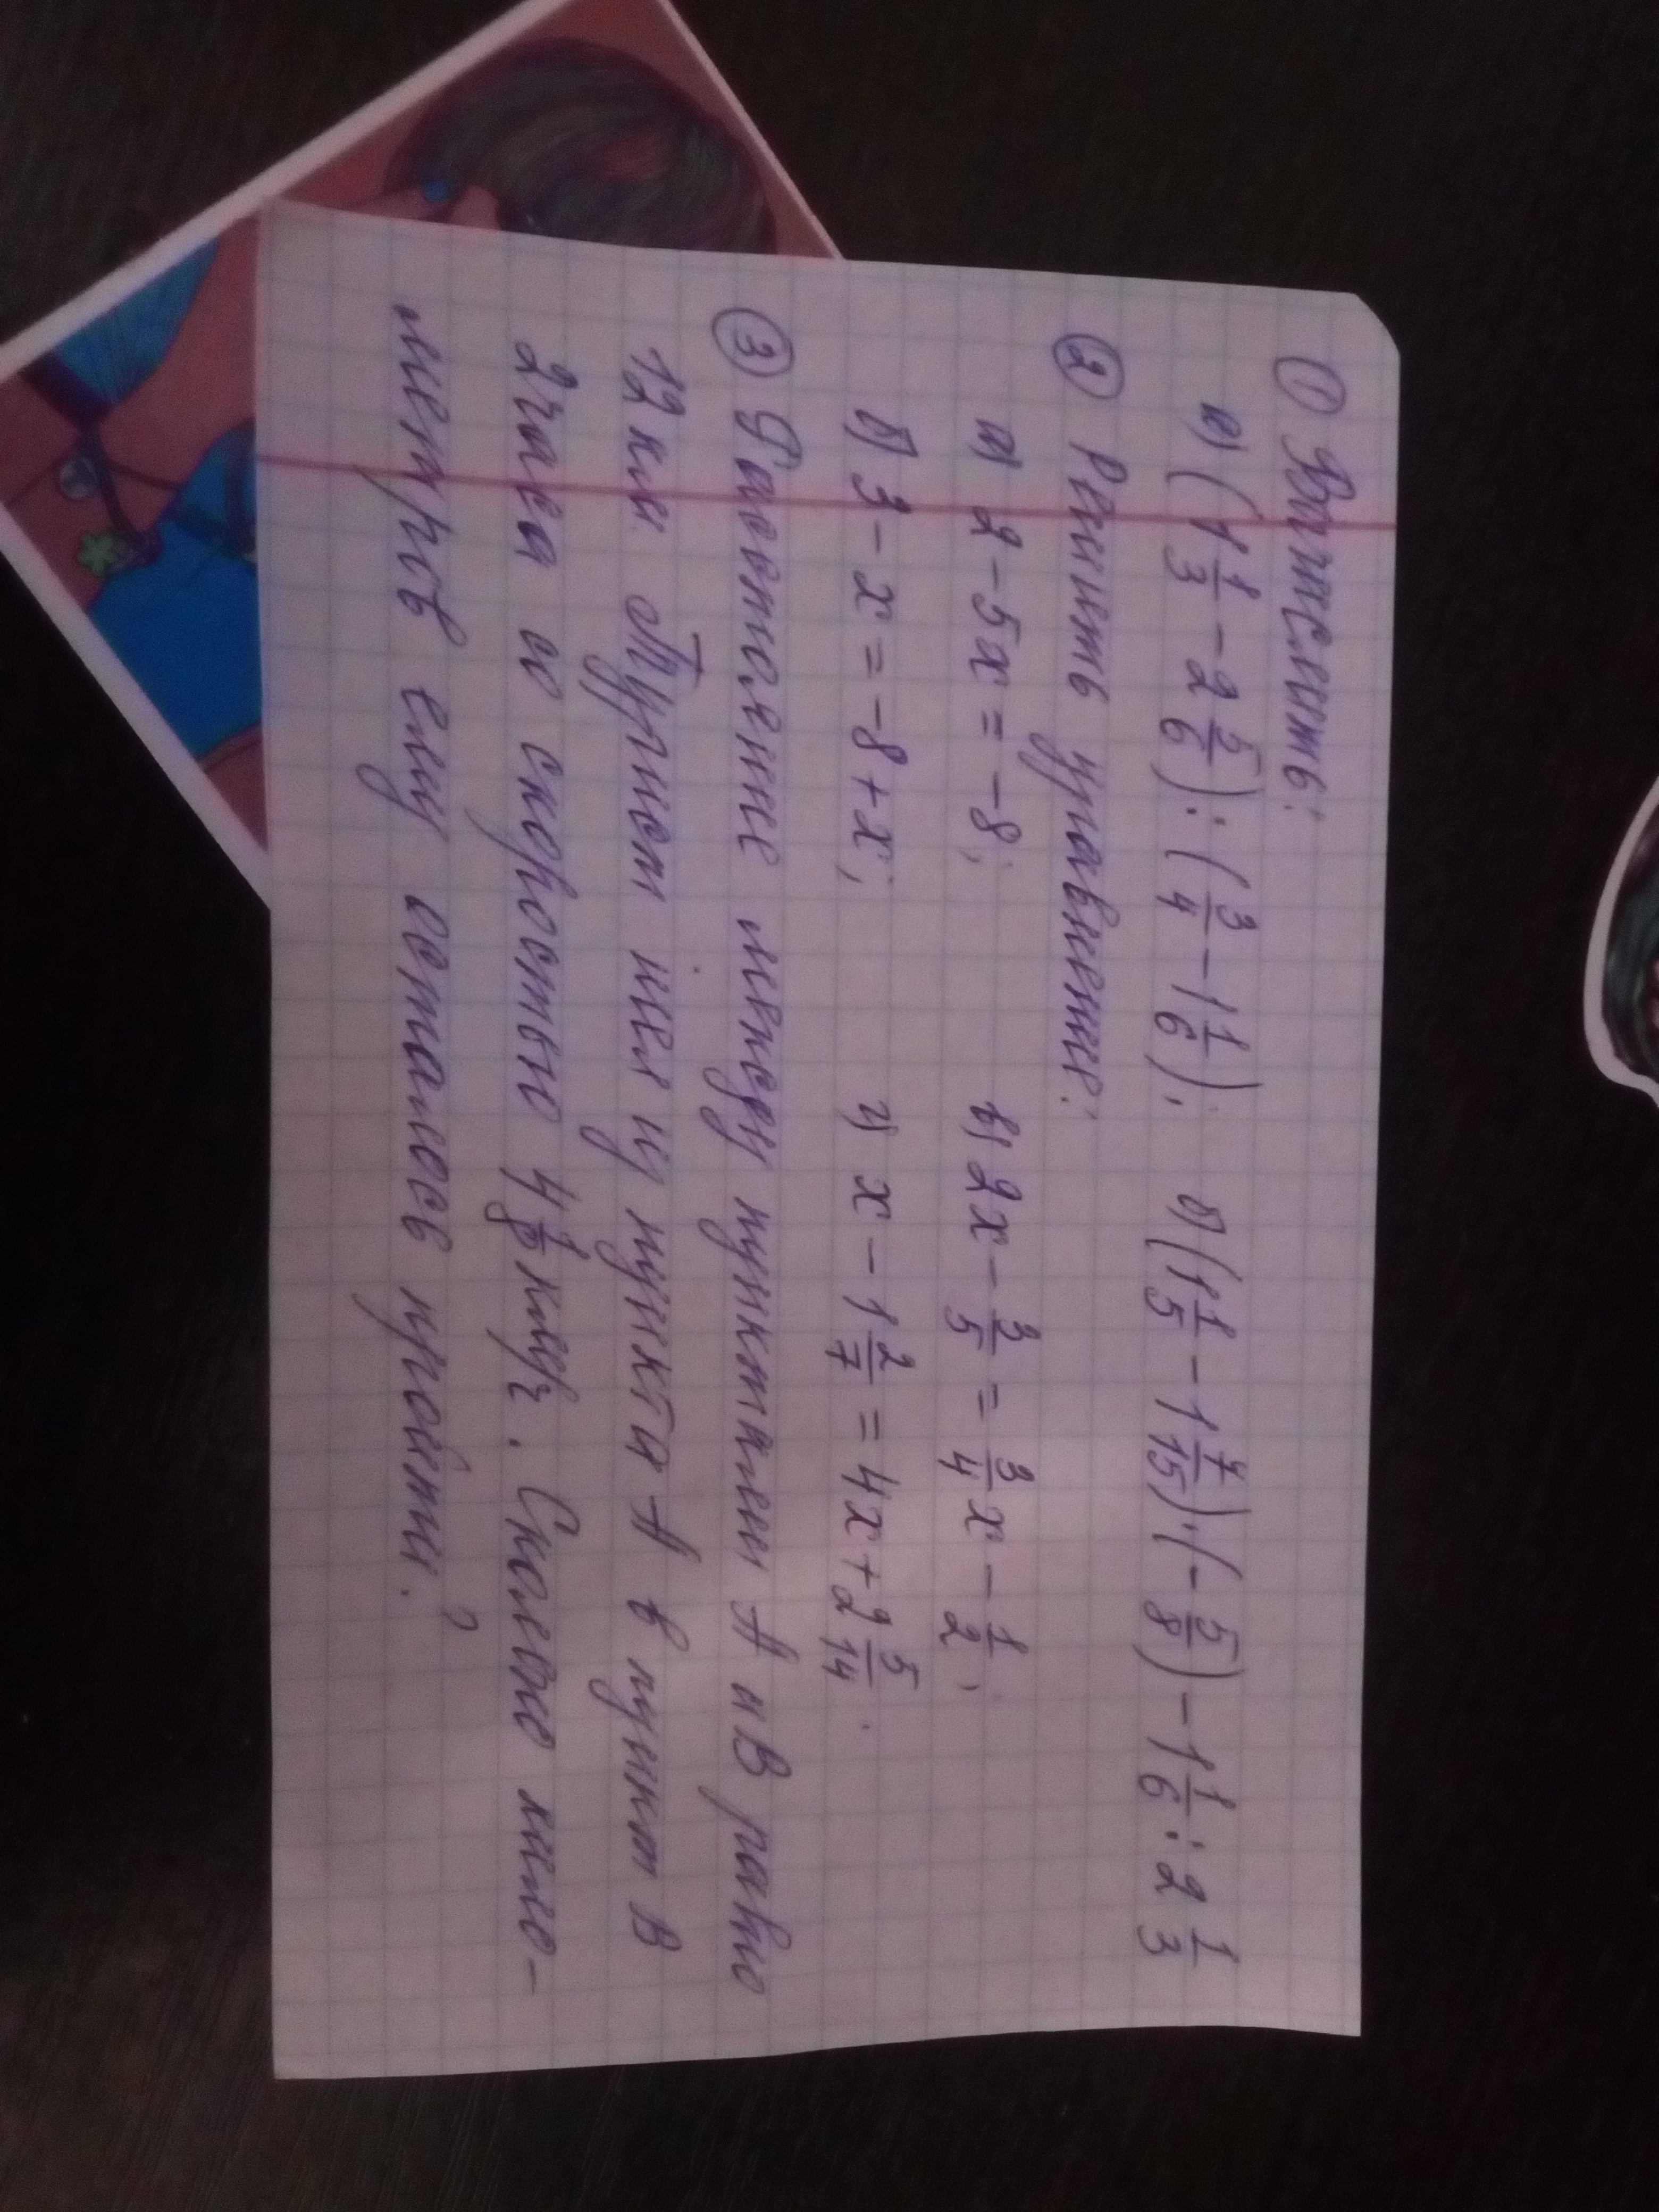 ① Вычислить:
а) (1 1/3 - 2 5/6) : (3/4 - 1 1/6); б) (1 1/5 - 1 7/15) · (- 5/8) - 1 1/6 : 2 1/3
② Решить уравнение:
а) 2 - 5x = -8; в) 2x - 3/5 = 3/4 x - 1/2;
б) 3 - x = -8 + x; г) x - 1 2/7 = 4x + 2 5/14.
③ Расстояние между пунктами А и В равно
12 км. Турист шёл из пункта А в пункт В
2 часа со скоростью 4 км/ч. Сколько кило-
метров ему осталось пройти?